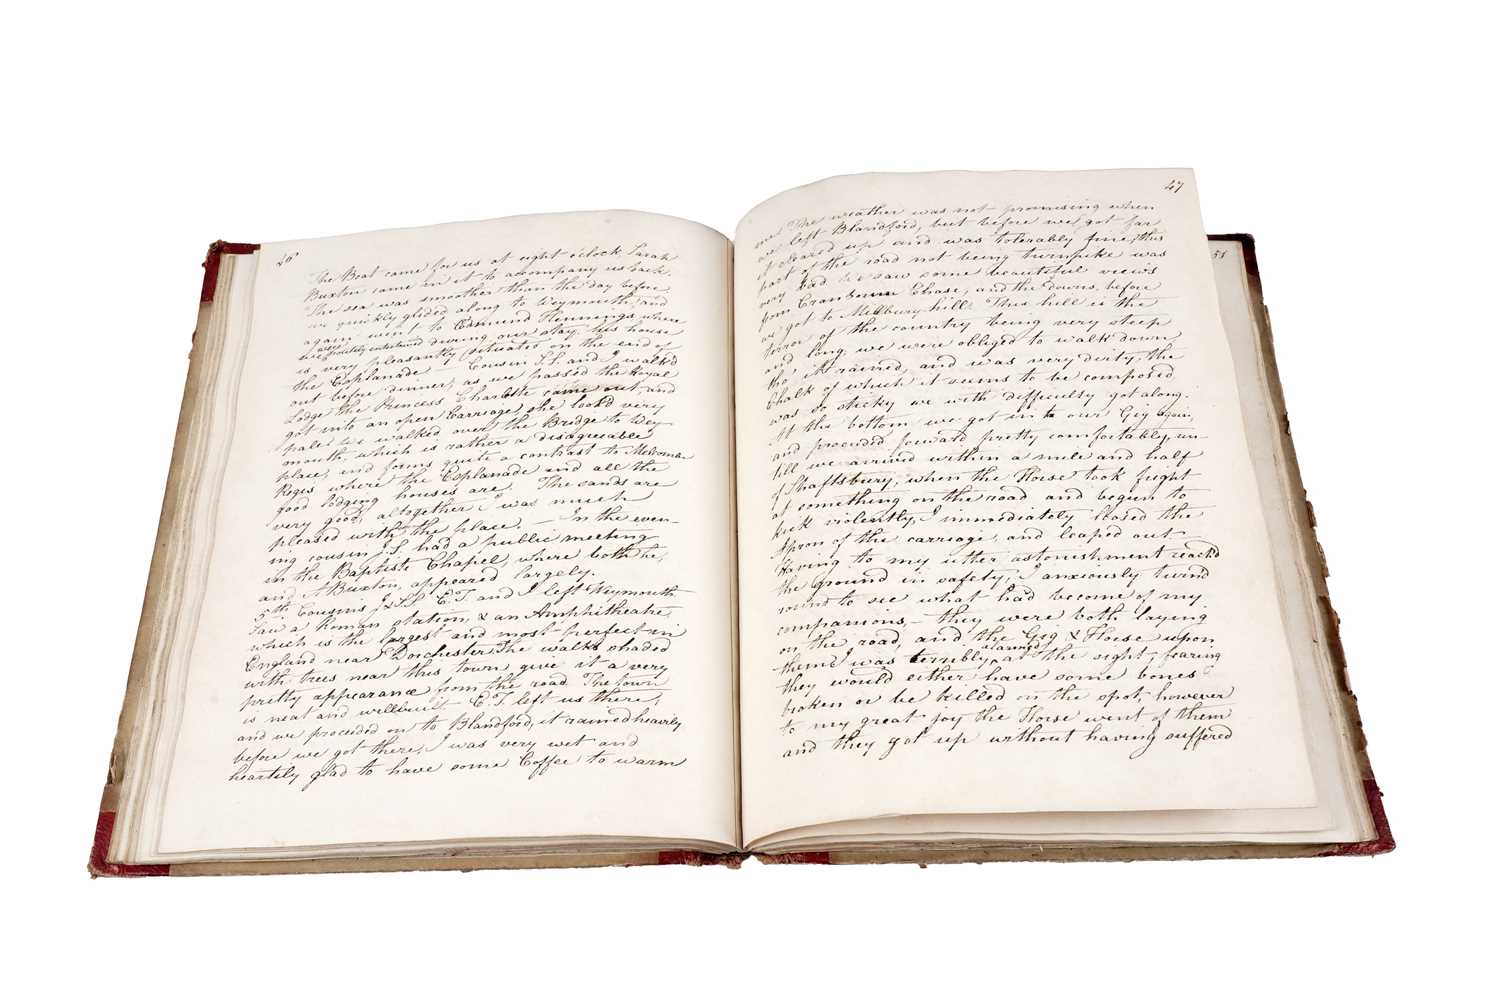 46
The Boat came for us at eight o'clock, Sarah
Buxton came in it to acompany us back.
The sea was smoother then the day before,
we quickly glided along to Weymouth, and
again went to Edmund Hennings where
we were politely entertained during our stay, his house
is very pleasantly situated on the end of
the Esplanade — Cousin S.S. and I walk'd
out before dinner, as we passed the Royal
Lodge the Princess Charlotte came out, and
got into an open Carriage, she look'd very
pale we walked over the Bridge to Wey-
mouth, which is rather a disagreeable
place, and forms quite a contrast to Melcombe
Regis where the Esplanade and all the
good lodging houses are. The sands are
very good, altogether I was much
pleased with the place. — In the even-
ing cousin J.S. had a public meeting
in the Baptist Chapel, where both he,
and A Buxton, appeared largely.
5th Cousins J & S.S. E.T. and I left Weymouth
saw a Roman station, & an Amphitheatre,
which is the largest and most perfect in
England near Dorchester, The walks shaded
with trees near this town give it a very
pretty appearance from the road. The town
is neat and wellbuilt — E.T. left us there,
and we proceeded on to Blandford, it rained heavily
before we got there, I was very wet and
heartily glad to have some Coffee to warm
47
me The weather was not promising when
we left Blandford, but before we got far
it cleared up and was tolerably fine, this
part of the road not being turnpike was
very bad we saw some beautiful views
from Cranborne Chase, and the downs, before
we got to Millbury hill. This hill is the
terror of the country being very steep
and long, we were obliged to walk down
tho' it rained, and was very dirty, the
Chalk of which it seems to be composed
was so sticky we with difficulty got along.
At the bottom we got in to our Gig again,
and proceeded forward pretty comfortably, un-
till we arrived within a mile and half
of Shaftsbury, when the Horse took fright
at something on the road and begun to
kick violently, I immediately loosed the
Apron of the carriage, and leaped out
Having to my utter astonishment reach'd
the ground in safety, I anxiously turnd
round to see what had become of my
companions, — they were both laying
on the road, and the Gig & Horse upon
them I was terribly alarmed at the sight, fearing
they would either have some bones
broken or be killed on the spot, however
to my great joy the Horse went of them
and they got up without having suffered
51